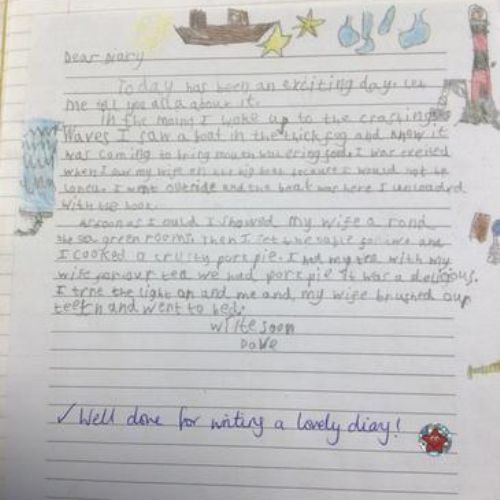 Dear Diary
Today has been an exciting day. Let
me tell you all about it.
In the morning I woke up to the crashing
Waves I saw a boat in the thick fog and knew it
was coming to bring mouth watering food. I was excited
when I saw my wife on the big boat because I would not be
lonely. I went outside and the boat was here I unloaded
with the hook.
As soon as I could I showed my wife a rond
the sea green rooms. Then I set the table for two and
I cooked a crusty pork pie. I had my tea with my
wife for our tea we had pork pie it was a delicious.
I trne the light on and me and my wife brushed our
teeth and went to bed.
write soon
Dave
✓ Well done for writing a lovely diary!